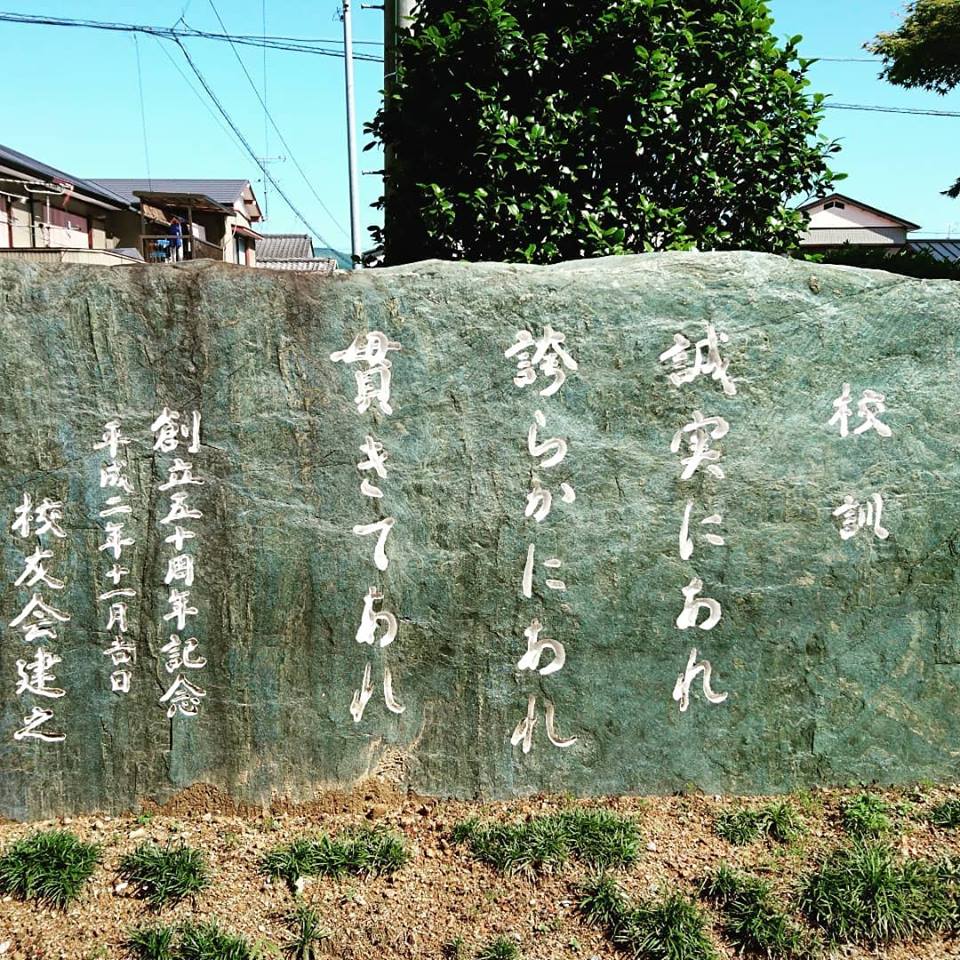 校訓
誠実にあれ
誇らかにあれ
貫きてあれ
創立五十周年記念
平成二年十一月吉日
校友会建之